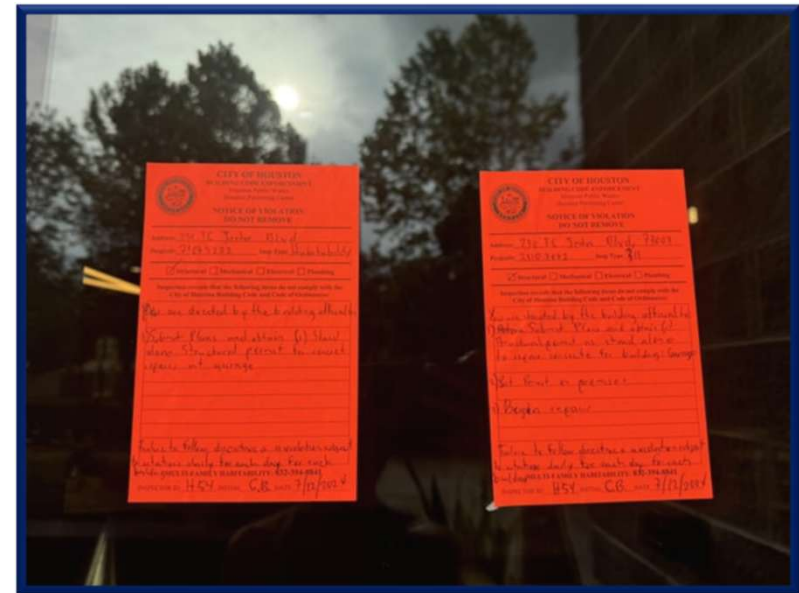 CITY OF HOUSTON
BUILDING CODE ENFORCEMENT
Houston Public Works
Houston Permitting Center
NOTICE OF VIOLATION
DO NOT REMOVE
Address Blvd
Project# Insp Type
Structural Mechanical Electrical Plumbing
Inspection reveals that the following items do not comply with the
City of Houston Building Code and Code of Ordinances:
You are directed by the building official to
1) Submit Plans and obtain (1) Stand
alone Structural permit to correct
garage
Failure to follow directives a violation subject
to citations daily for each day for each
building MULTI-FAMILY HABITABILITY: 832-394-8841
INSPECTOR ID H54 INITIAL C.B. DATE 7/12/2024
CITY OF HOUSTON
BUILDING CODE ENFORCEMENT
Houston Public Works
Houston Permitting Center
NOTICE OF VIOLATION
DO NOT REMOVE
Address Blvd,
Project# Insp Type
Structural Mechanical Electrical Plumbing
Inspection reveals that the following items do not comply with the
City of Houston Building Code and Code of Ordinances:
You are directed by the building official to
1) Submit Plans and obtain (1)
Structural permit as stand alone
to repair concrete for building: Garage
2) premises
3) Begin repair
Failure to follow directives a violation subject
to citations daily for each day for each
building MULTI-FAMILY HABITABILITY: 832-394-8841
INSPECTOR ID H54 INITIAL C.B. DATE 7/12/2024